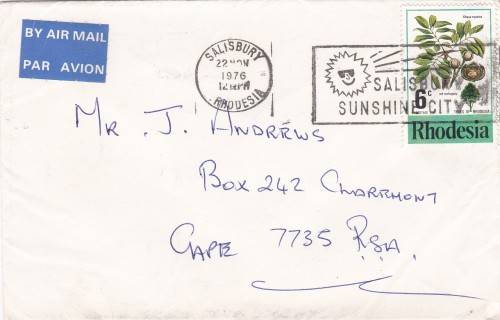 BY AIR MAIL
PAR AVION
SALISBURY
22 NOV
1976
12 PM
RHODESIA
SALISBURY
SUNSHINE CITY
6c
Rhodesia
Mr J. Andrews
Box 242 Claremont
Cape 7735 RSA